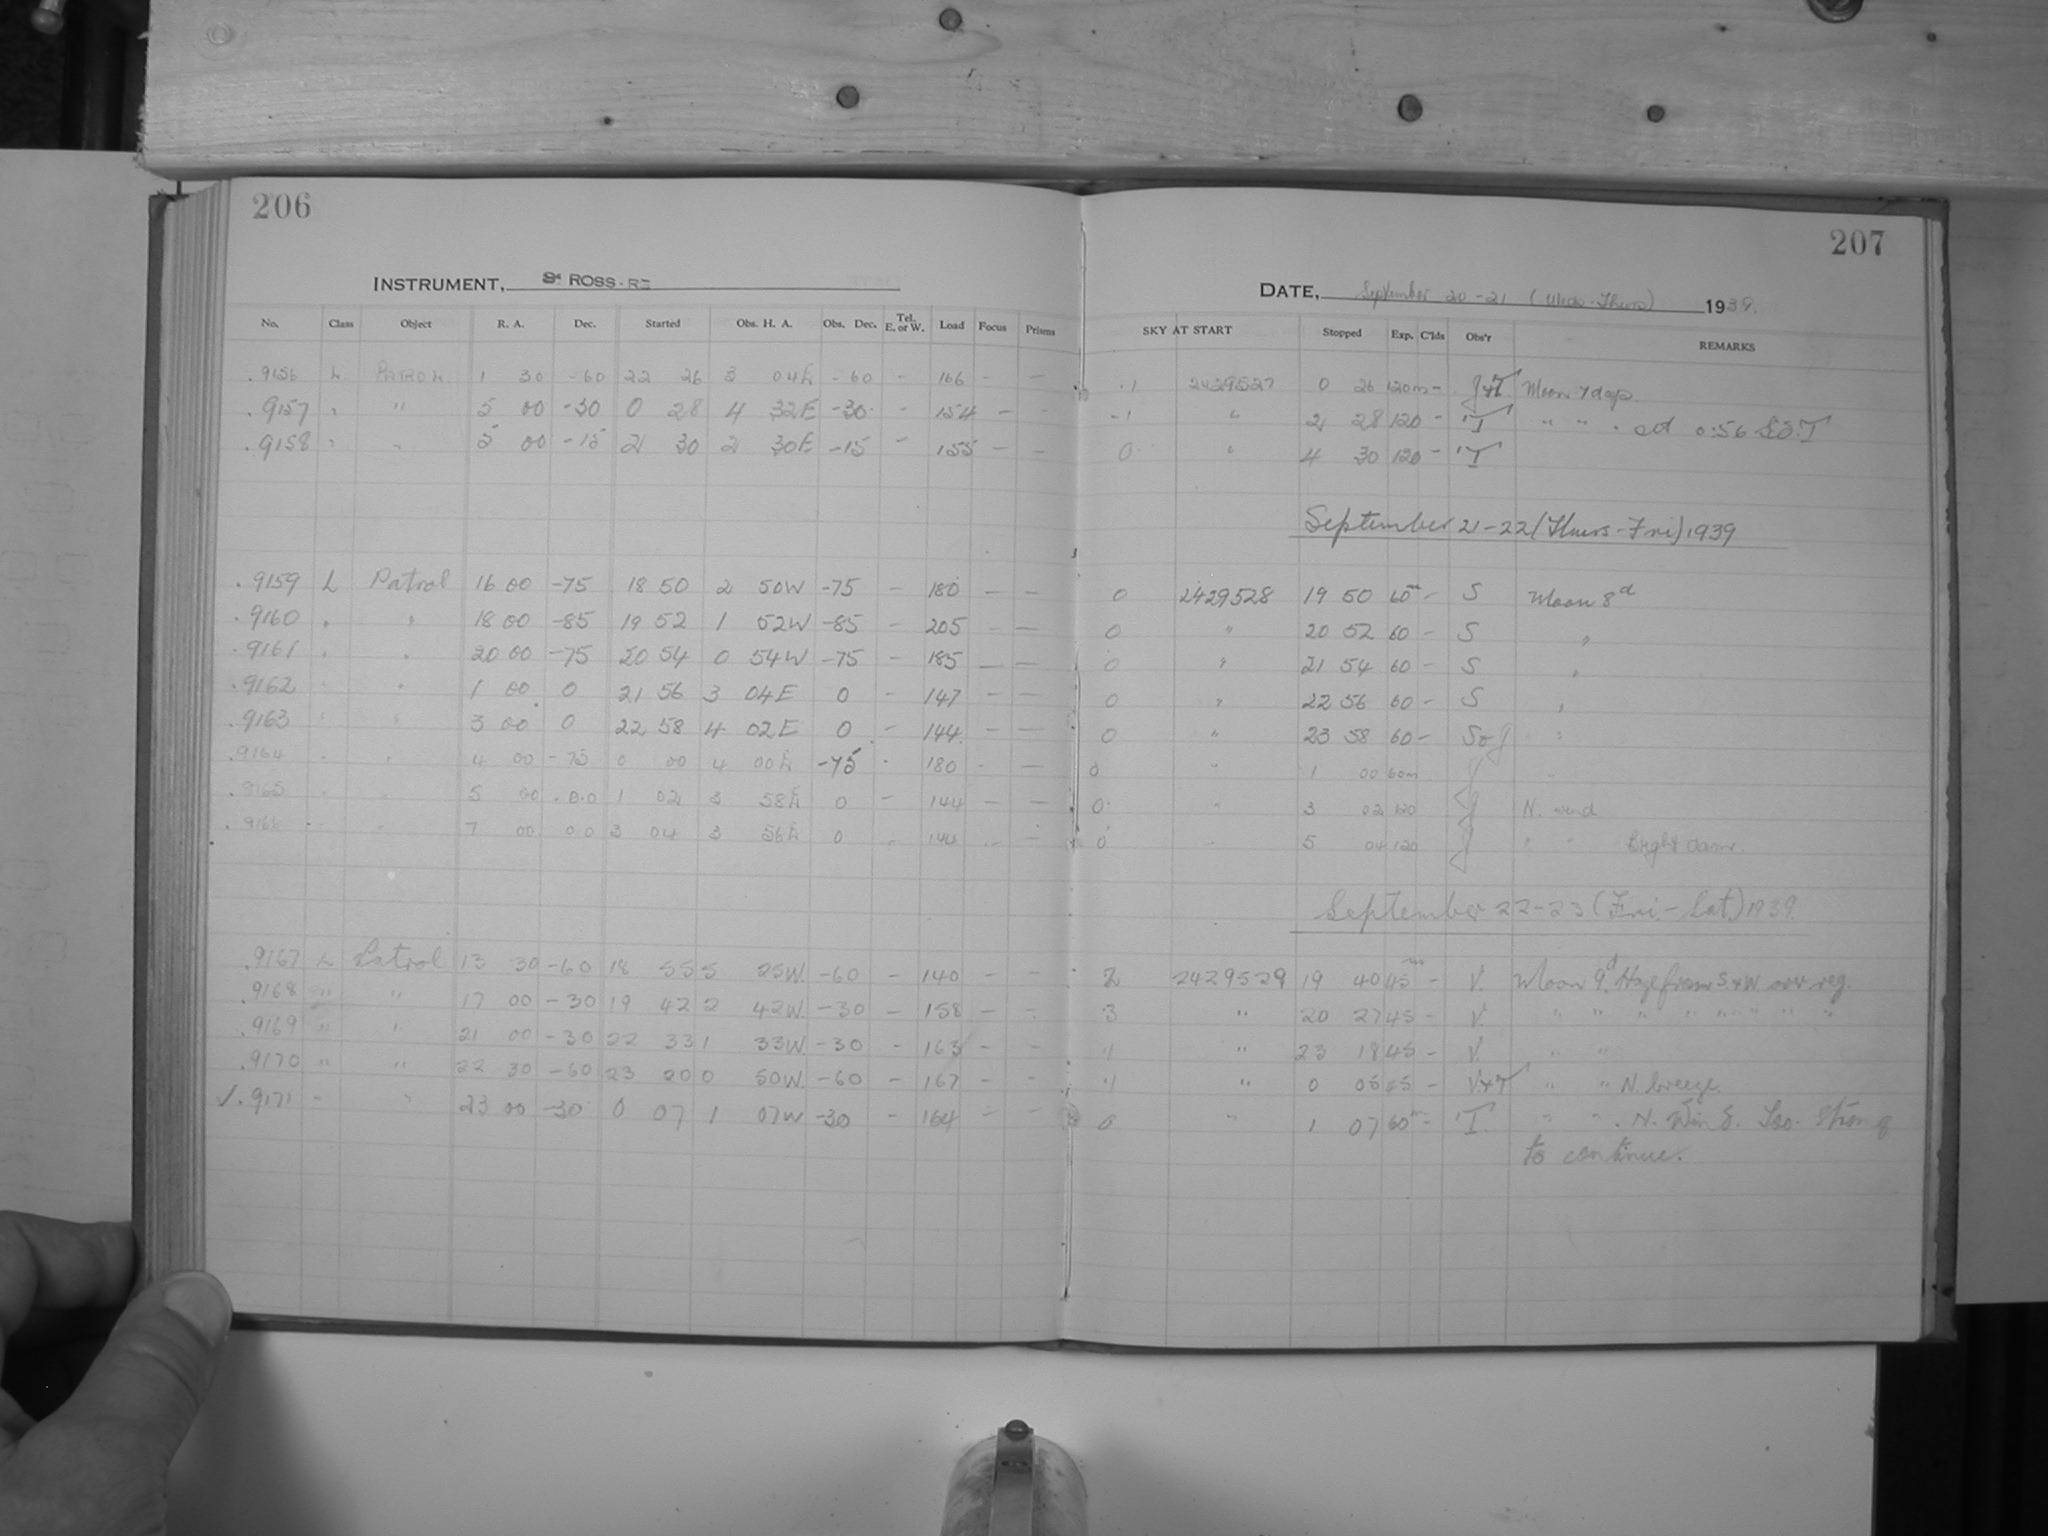 206
207
INSTRUMENT, ROSS-
DATE, September 20-21 (Weds-Thurs) 1939.
No. Class Object R. A. Dec. Started Obs. H. A. Obs. Dec. Tel. E. or W. Load Focus Prisms SKY AT START Stopped Exp. C'lds Obs'r REMARKS
.9156 L PATROL 1 30 -60 22 26 3 04E -60 - 166 - - .1 2429527 0 26 120m - J+T Moon 7 days
.9157 " " 5 00 -30 0 28 4 32E -30 - 154 - - -1 " 2 28 120 - T " " . set 0:56
.9158 " " 5 00 -15 2 30 2 30E -15 - 155 - - 0 " 4 30 120 - T
September 21-22 (Thurs-Fri) 1939
.9159 L Patrol 16 00 -75 18 50 2 50W -75 - 180 - - 0 2429528 19 50 60m - S Moon 8d
.9160 " " 18 00 -85 19 52 1 52W -85 - 205 - - 0 " 20 52 60 - S "
.9161 " " 20 00 -75 20 54 0 54W -75 - 185 - - 0 " 21 54 60 - S "
.9162 " " 1 00 0 21 56 3 04E 0 - 147 - - 0 " 22 56 60 - S "
.9163 " " 3 00 0 22 58 4 02E 0 - 144 - - 0 " 23 58 60 - S "
.9164 " " 4 00 -75 0 00 4 00E -75 - 180 - - 0 " 1 00 60m J "
.9165 " " 5 00 0.0 1 02 3 58E 0 - 144 - - 0 " 3 02 120 J N. wind
.9166 " " 7 00 0 0 3 04 3 56E 0 - 144 - - 0 " 5 04 120 J " " Bright dawn.
September 22-23 (Fri-Sat) 1939.
.9167 L Patrol 13 30 -60 18 55 5 25W -60 - 140 - - 2 2429529 19 40 45m - V. Moon 9d. Haze from S+W over reg.
.9168 " " 17 00 -30 19 42 2 42W -30 - 158 - - 3 " 20 27 45 - V. " " " " " " " "
.9169 " " 21 00 -30 22 33 1 33W -30 - 163 - - 1 " 23 18 45 - V. " "
.9170 " " 22 30 -60 23 20 0 50W -60 - 167 - - 1 " 0 05 45 - V+T " " N. breeze.
✓.9171 " " 23 00 -30 0 07 1 07W -30 - 164 - - 0 " 1 07 60m - T. " " . N. Wind. Too Strong
to continue.